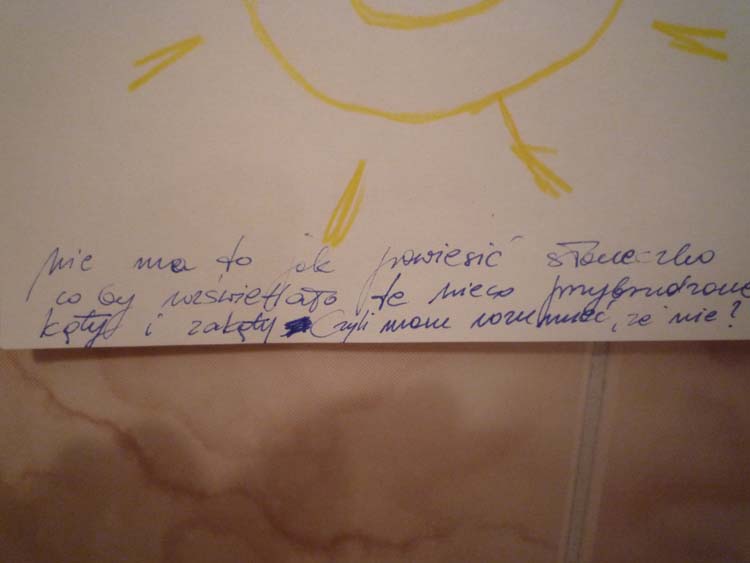 nie ma to jak powiesić słoneczko
co by rozświetlało te nieco przybrudzone
kąty i zakąty Czyli mam rozumieć, że nie?